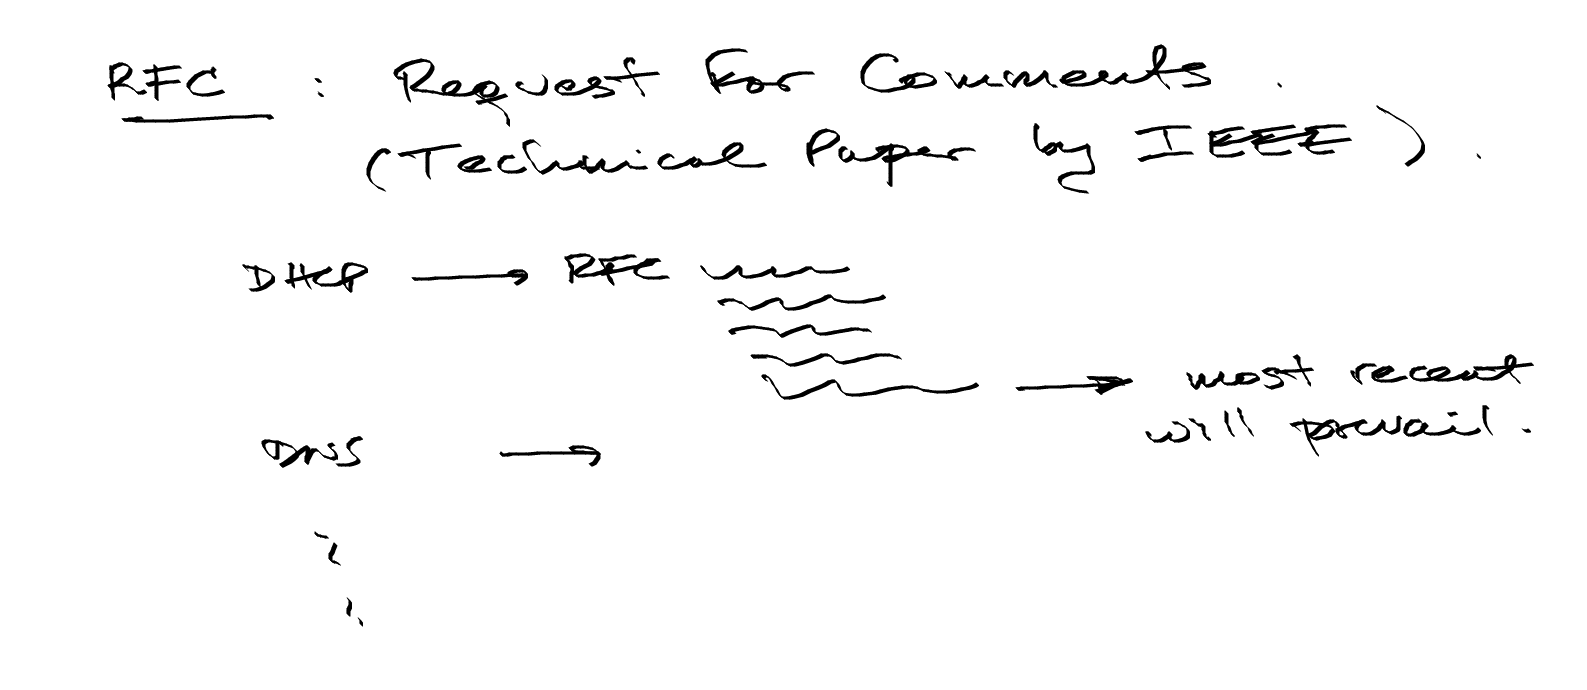 RFC : Request For Comments.
(Technical Paper by IEEE).
DHCP → RFC
→ most recent
will prevail.
DNS →